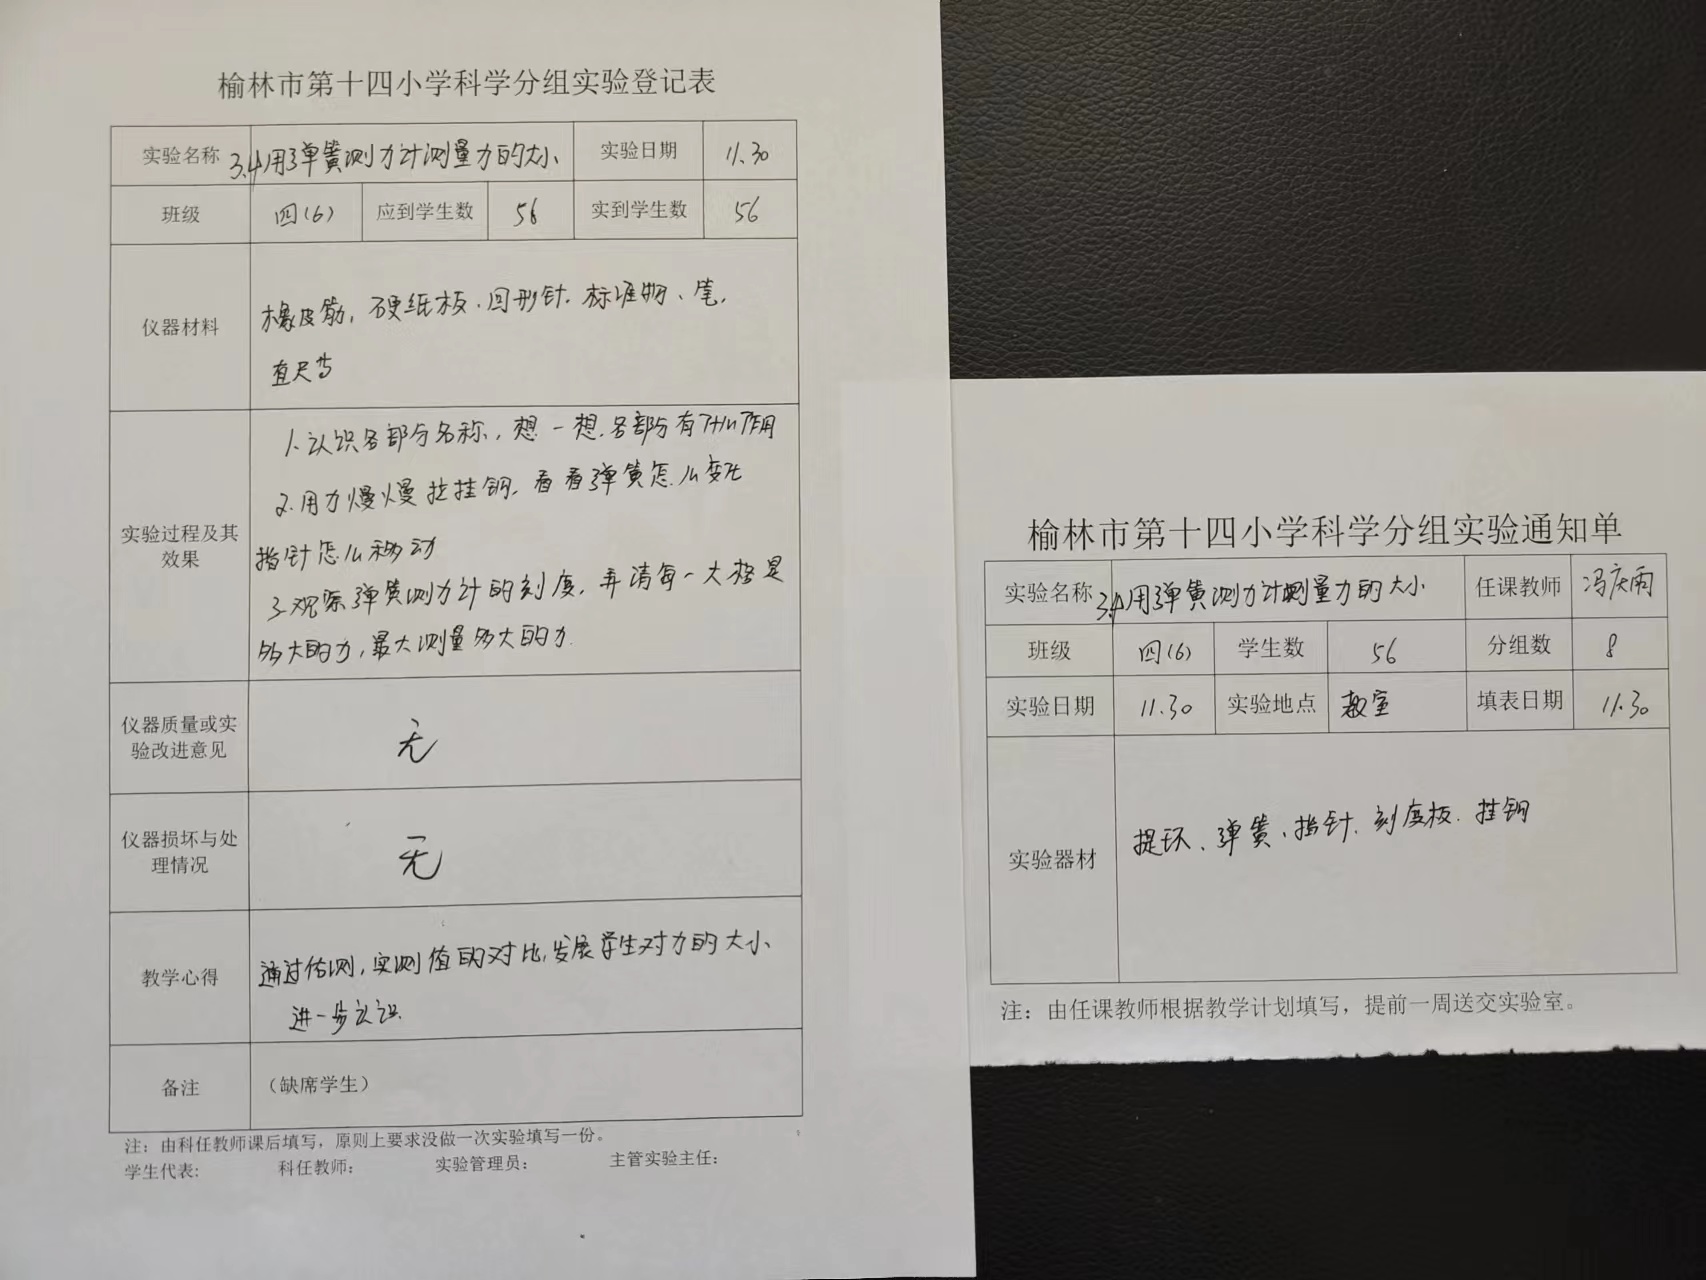 榆林市第十四小学科学分组实验登记表
实验名称 3.4用弹簧测力计测量力的大小 实验日期 11.30
班级 四(6) 应到学生数 56 实到学生数 56
仪器材料
橡皮筋,硬纸板、回形针、标准物、笔,
直尺等
实验过程及其
效果
1.认识各部分名称,想一想,各部分有什么作用
2.用力慢慢拉挂钩,看看弹簧怎么变化
指针怎么移动
3.观察弹簧测力计的刻度,弄清每一大格是
多大的力,最大测量多大的力.
仪器质量或实
验改进意见
无
仪器损坏与处
理情况
无
教学心得
通过估测,实测值的对比,发展学生对力的大小
进一步认识.
备注 (缺席学生)
注:由科任教师课后填写,原则上要求没做一次实验填写一份。
学生代表: 科任教师: 实验管理员: 主管实验主任:
榆林市第十四小学科学分组实验通知单
实验名称 3.4用弹簧测力计测量力的大小 任课教师 冯庆雨
班级 四(6) 学生数 56 分组数 8
实验日期 11.30 实验地点 教室 填表日期 11.30
实验器材
提环、弹簧、指针、刻度板、挂钩
注:由任课教师根据教学计划填写,提前一周送交实验室。